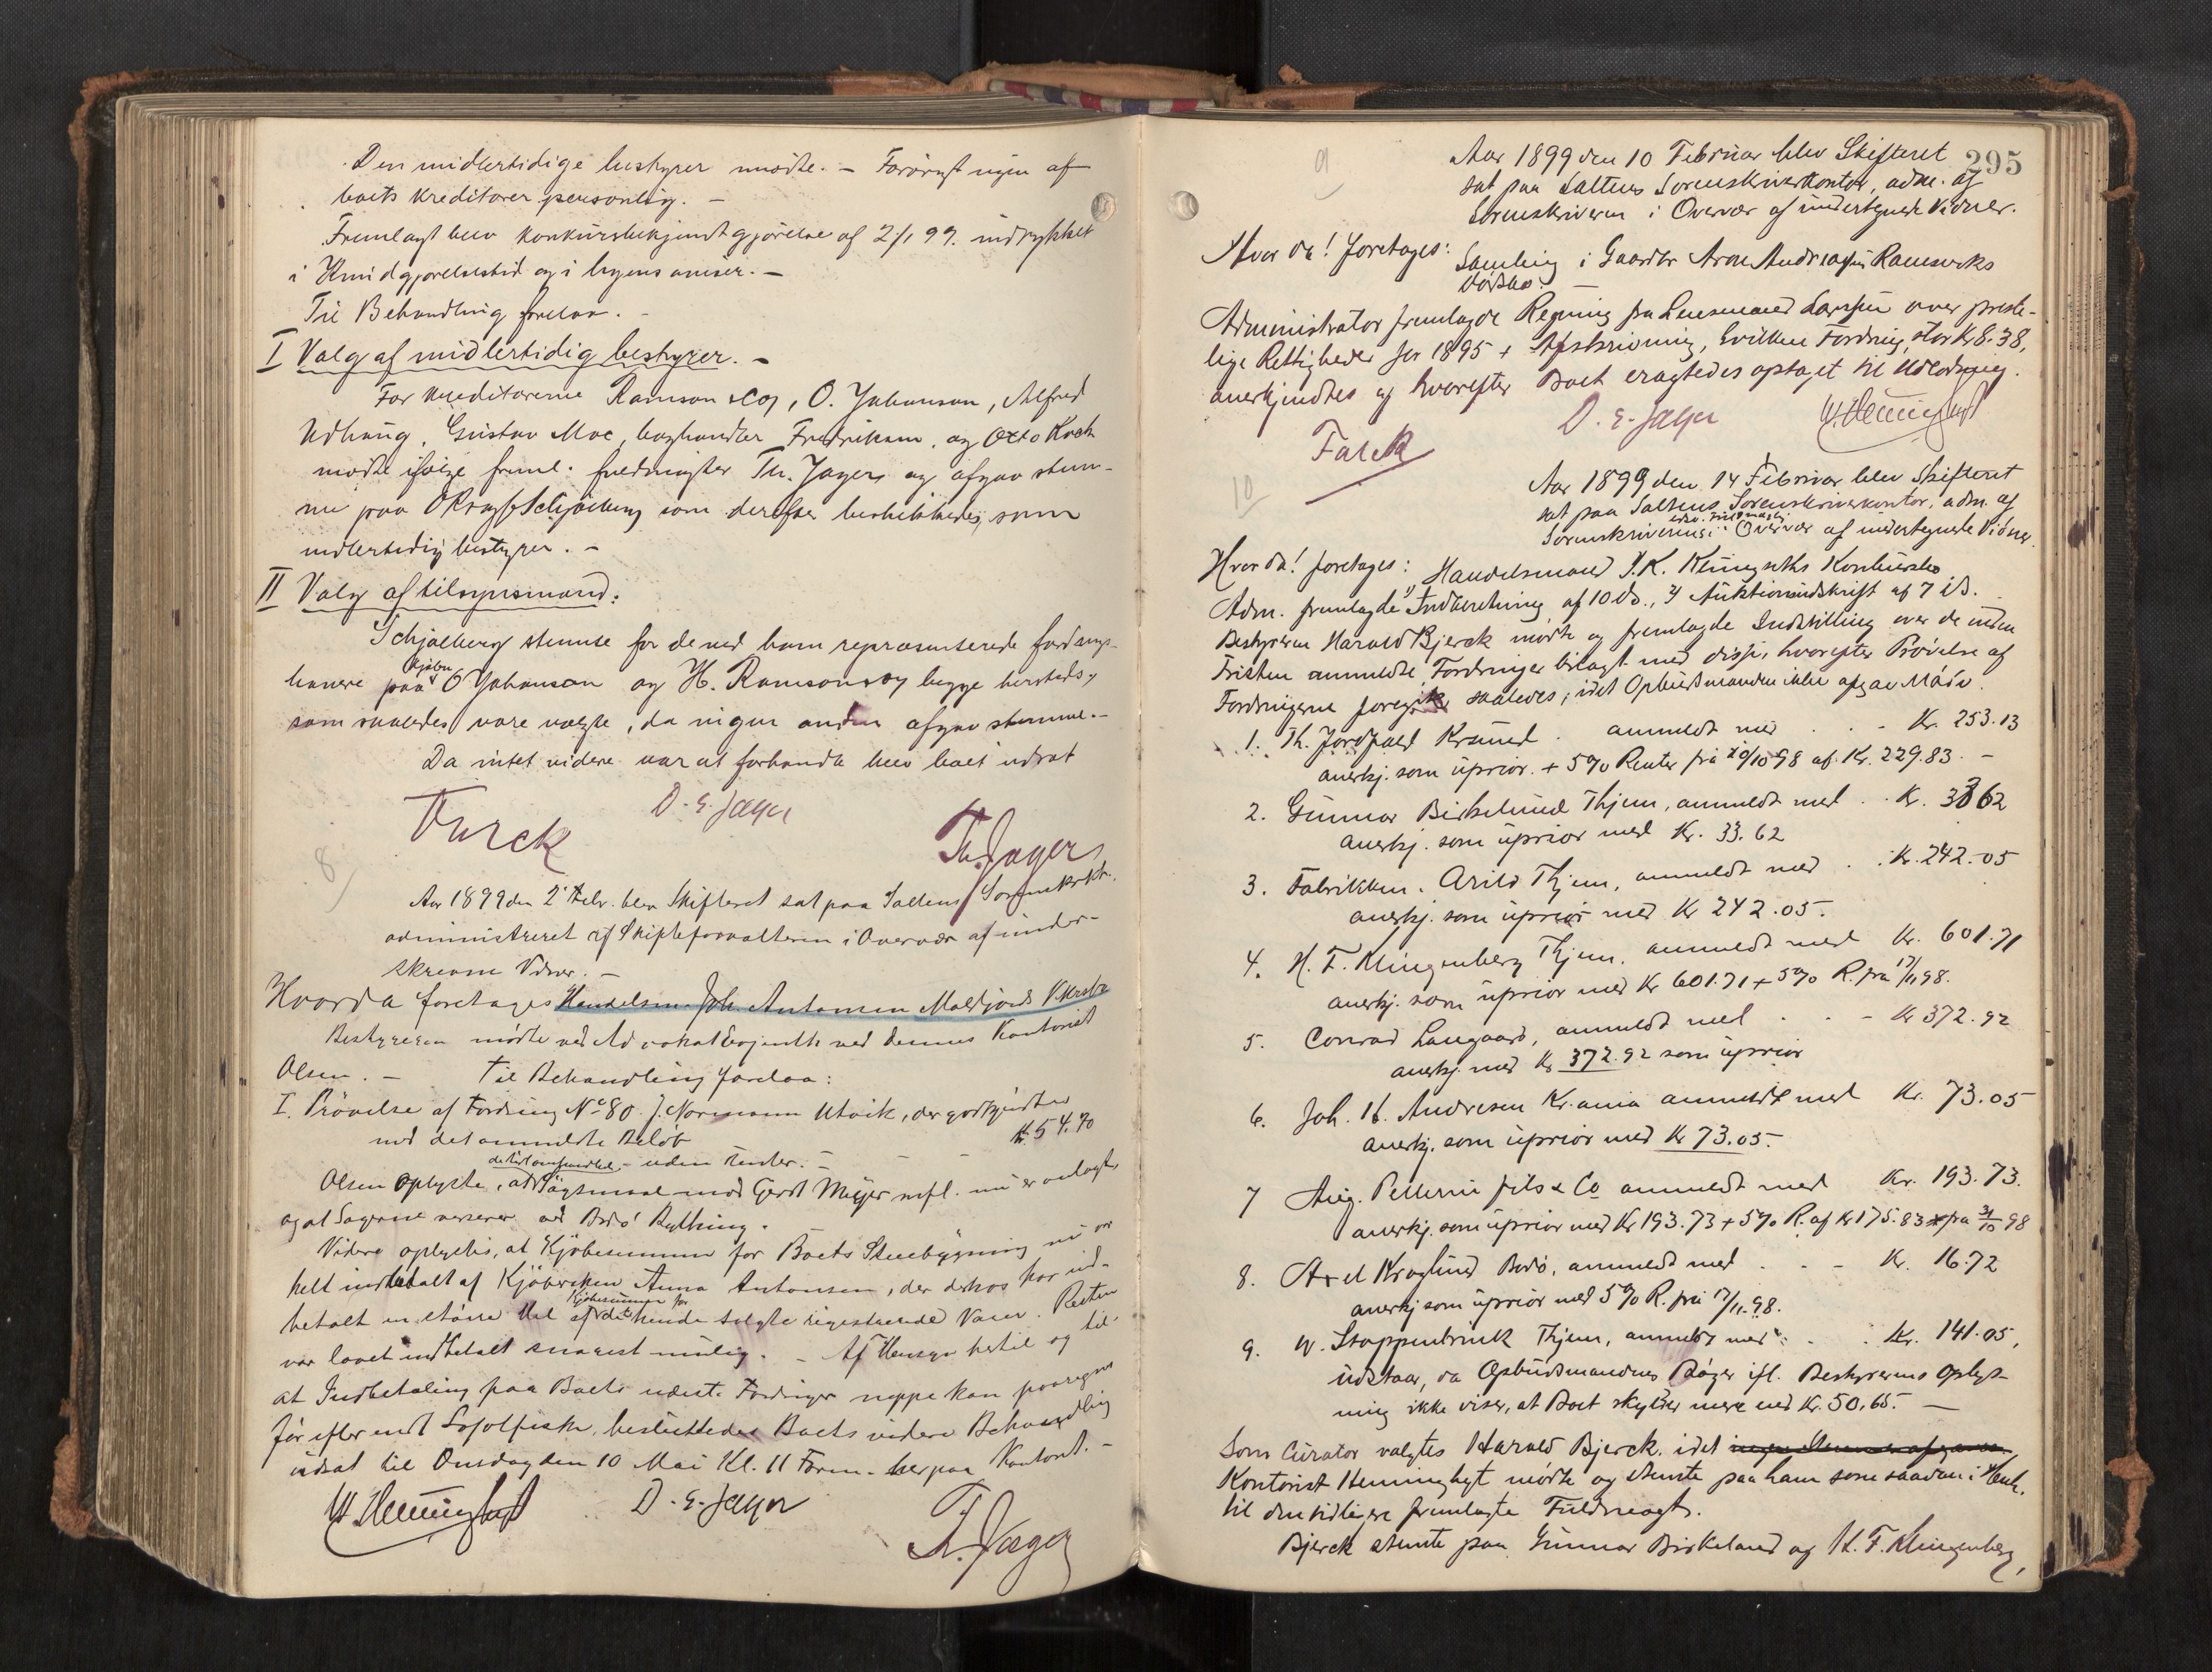 Den midlertidige bestyrer mødte. – Forøvrigt ingen af
boets kreditorer personlig. –
Fremlagt blev konkursbekjendtgjørelse af 2/1 99. indrykket
i Kundgjørelsestid og i byens aviser. –
Til Behandling forelaa. –
I Valg af midlertidig bestyrer. –
For kreditorerne Ramson & Co, O. Johanson, Alfred
Udhaug, Gustav Moe, boghandler Fredriksen, og Otto Koch
mødte ifølge freml. fuldmagter Th. Jager og afgav stem-
me paa Schjølberg som derefter beskikkedes som
midlertidig bestyrer. –
II Valg af tilsynsmænd:
Schjølberg stemte for de ved ham repræsenterede fordrings-
havere paa O Johanson og H. Ramson og begge herstæds,
som saaledes vare valgte, da ingen anden afgav stemme. –
Da intet videre var at forhandle blev boet udsat
D. E. Jager
Th. Jager
8
Aar 1899 den 2 Febr. blev Skifteret sat paa Saltens Sorenskrkt.
administreret af Skifteforvalteren i Overvær af under-
skrevne Vidner. –
Hvorda foretages Handelsm. Joh. Antonsen Misværfjords
Bestyreren mødte ved Advokat ved dennes Kontorist
Olsen. – Til Behandling forelaa:
I. Prøvelse af Fordring No 80. J. Normann Utvik, der godkjendtes
med det anmeldte Beløb Kr. 54.70
– uden Renter. –
Olsen oplyste, at Søgsmaal mod Gerdt Meyer mfl. nu er anlagt,
og at Sagerne verserer ved Bodø Bything.
Videre oplystes, at Kjøbesummen for Boets Stuebygning nu er
helt indbetalt af Kjøbersken Anna Antonsen, der derhos har ind-
Kjøbesummen for
betalt en større Del af de hende solgte Varer. Resten
var lovet indbetalt snarest mulig. – Af Hensyn hertil og til,
at Indbetaling paa Boets udest. Fordringer neppe kan paaregnes
før efter endt Lofotfiske, besluttedes Boets videre Behandling
udsat til Onsdag den 10 Mai Kl. 11 Form. her paa Kontoret. –
D. E. Jager
Th. Jager
295
9
Aar 1899 den 10 Februar blev Skifteret
sat paa Saltens Sorenskriverkontor, adm. af
Sorenskriveren i Overvær af undertegnede Vidner.
Hvor da! foretages: Samling i Gaardbr Aron Andreassen Ramsviks
Dødsbo. –
Administrator fremlagde Regning fra Lensmand Larssen over preste-
lige Rettigheder for 1895 + Afskrivning, hvilken Fordring, stor Kr 8.38,
anerkjendtes og hvorefter Boet eragtedes optaget til Udlodning.
D. E. Jager
Falck
10
Aar 1899 den 14 Februar blev Skifteret
sat paa Saltens Sorenskriverkontor, adm. af
Sorenskriverens Overvær af undertegnede Vidner.
Hvor da! foretages: Handelsmand J. K. Klungseths Konkursbo
Adm. fremlagde 1) Indberetning af 10 ds., 2) Auktionsudskrift af 7 ds.
Bestyreren Harald Bjerck mødte og fremlagde Indstilling over de inden
Fristen anmeldte Fordringer bilagt med disse, hvorefter Prøvelse af
Fordringerne foregik saaledes, idet Opbudsmanden ikke afgav Møde.
1. Th. Jordfald Krsund. anmeldt med . . – Kr. 253.13
anerkj. som uprior. + 5% Renter fra 20/10 98 af Kr. 229.83. –
2. Gunnar Birkelund Thjem, anmeldt med . . Kr. 33.62
anerkj. som uprior med Kr. 33.62
3. Fabrikken. Arild Thjem, anmeldt med . . Kr. 242.05
anerkj. som uprior med Kr 242.05.
4. H. F. Klingenberg Thjem. anmeldt med Kr. 601.71
anerkj. som uprior med Kr 601.71 + 5% R. fra 17/11 98.
5. Conrad Langaard, anmeldt med . . – Kr 372.92
anerkj. med Kr 372.92 som uprior
6. Joh. H. Andresen Kr.ania anmeldt med Kr. 73.05
anerkj. som uprior med Kr 73.05. –
7 Aug. Pellerin fils & Co anmeldt med Kr. 193.73.
anerkj. som uprior med Kr 193.73 + 5% R. af Kr 175.83 fra 31/10 98
8. Axel Kraglund Bodø, anmeldt med . . – Kr. 16.72
anerkj som uprior med 5% R. fra 17/11.98.
9. W. Stoppenbrink Thjem, anmeldt med . . Kr. 141.05,
udstaar, da Opbudsmandens Bøger ifl. Bestyrerens Oplys-
ning ikke viser, at Boet skylder mere end Kr. 50,65. –
Som Curator valgtes Harald Bjerck. idet ingen Stemmer afgaves
Kontorist Henningsbyt mødte og stemte paa ham som saadan i Henh.
til den tidligere fremlagte Fuldmagt.
Bjerck stemte paa Gunnar Birkeland og H. F. Klingenberg,